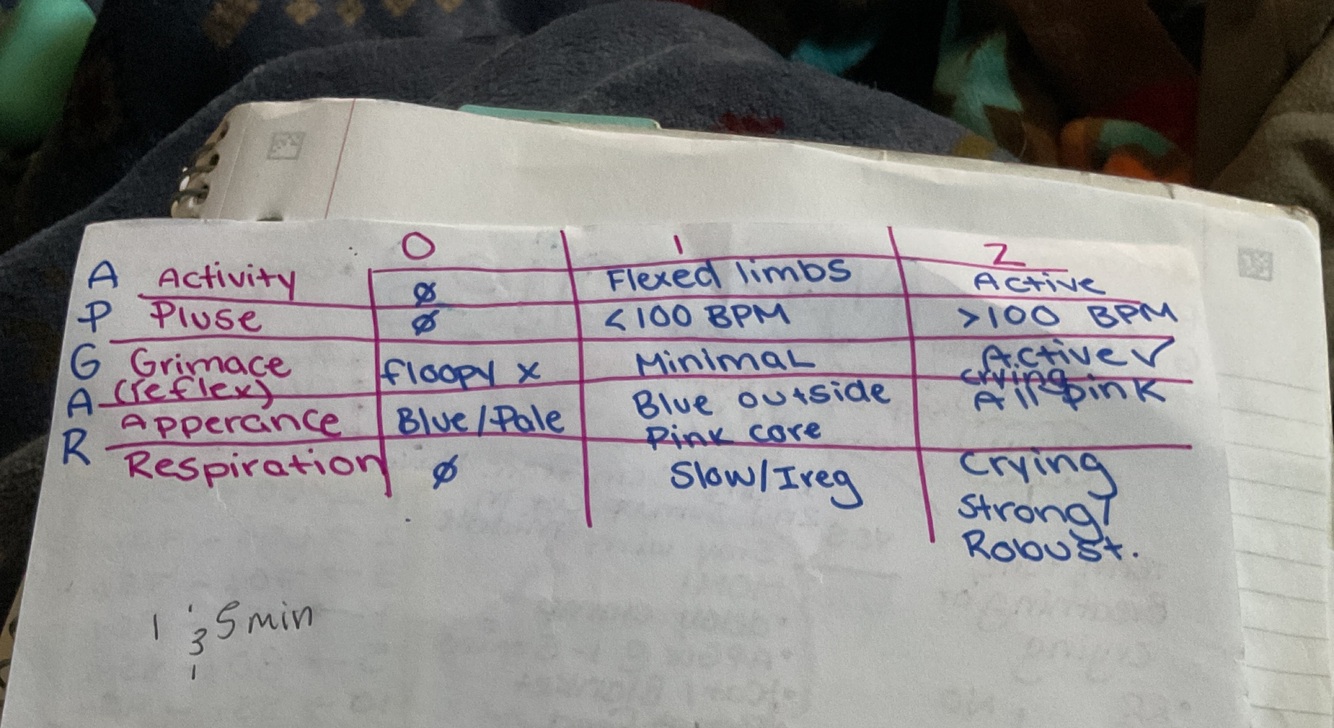 0 1 2
A Activity ∅ Flexed limbs Active
P Pluse ∅ <100 BPM >100 BPM
G Grimace floopy x Minimal Active ✓
A (reflex) crying
Apperance Blue/Pale Blue outside All pink
Pink core
R Respiration ∅ Slow/Ireg Crying
Strong/
Robust.
1 & 5 min